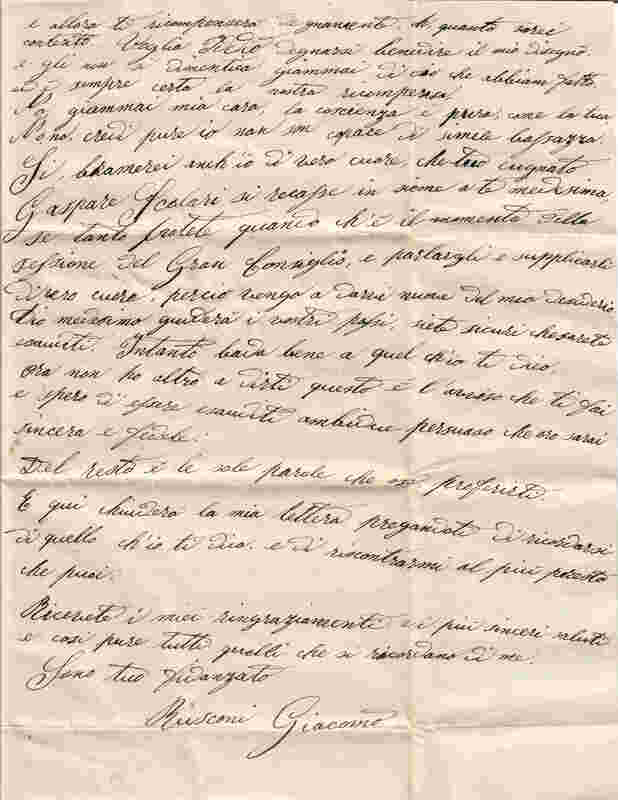 e allora ti ricompenserà degnamente oh quanto sarei
contento. Voglia Iddio degnarsi benedire il mio disegno
e gli non si dimentica giammai di ciò che abbiam fatto.
è sempre certa la nostra ricompensa.
No giammai mia cara, la coscienza è pura, come la tua
No no, credi pure io non son capace di simile bassazza.
Si, bramerei anch'io di vero cuore, che tuo cugnato
Gaspare Scolari si recasse in sieme a te medisima,
se tanto potete quando ch'è il momento della
sessione del Gran Consiglio, e parlargli e supplicarli
di vero cuore, perciò vengo a darvi nuove del mio desiderio,
Dio medesimo guiderà i vostri passi, siete sicuri che sarete
esauditi. Intanto bada bene a quel ch'io ti dico.
Ora non ho altro a dirti questo è l'avviso che ti fai
e spero di essere esauditi ambidue persuaso che ora sarai
sincera e fedele.
Del resto è le sole parole che preferisti.
E qui chiuderò la mia lettera pregandoti di ricordarsi
di quello ch'io ti dico. e di riscontrarmi al più presto
che puoi.
Ricevete i miei ringraziamenti e i più sinceri saluti
e così pure tutti quelli che si ricordano di me.
Sono tuo fidanzato
Rusconi Giacomo